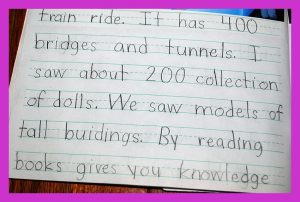 train ride. It has 400
bridges and tunnels. I
saw about 200 collection
of dolls. We saw models of
tall buidings. By reading
books gives you knowledge